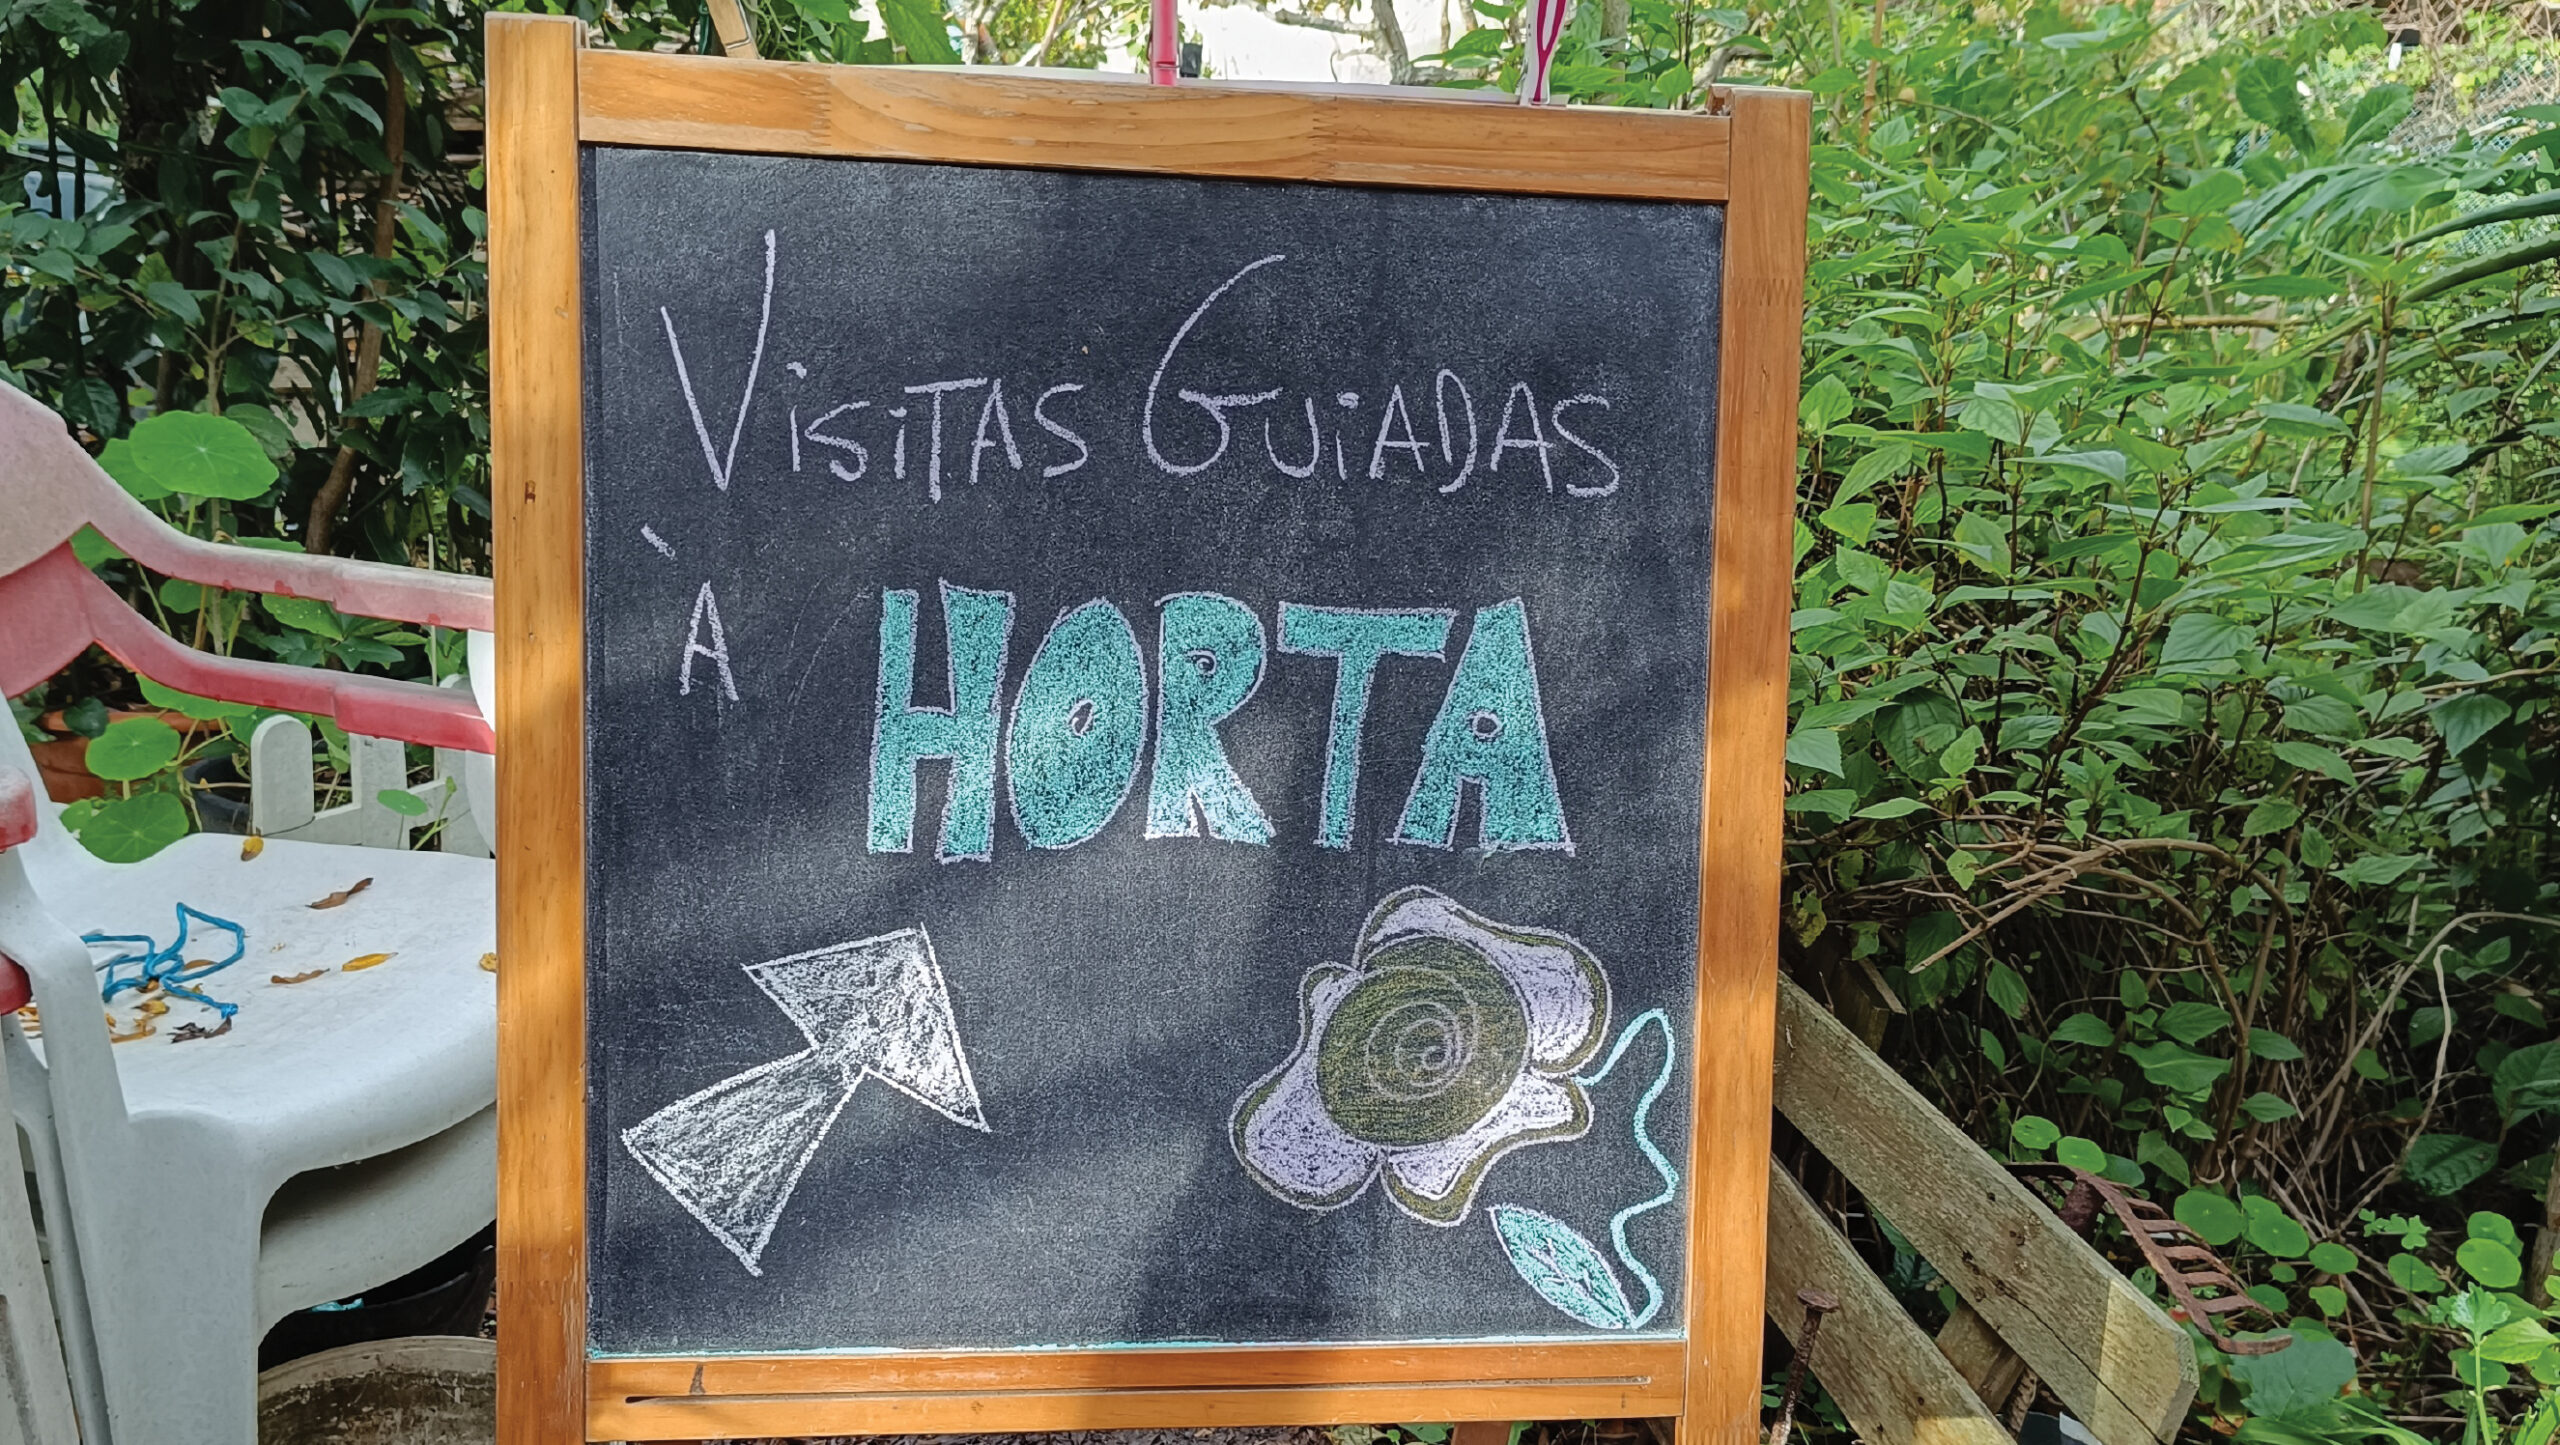 VISITAS GUIADAS
À HORTA